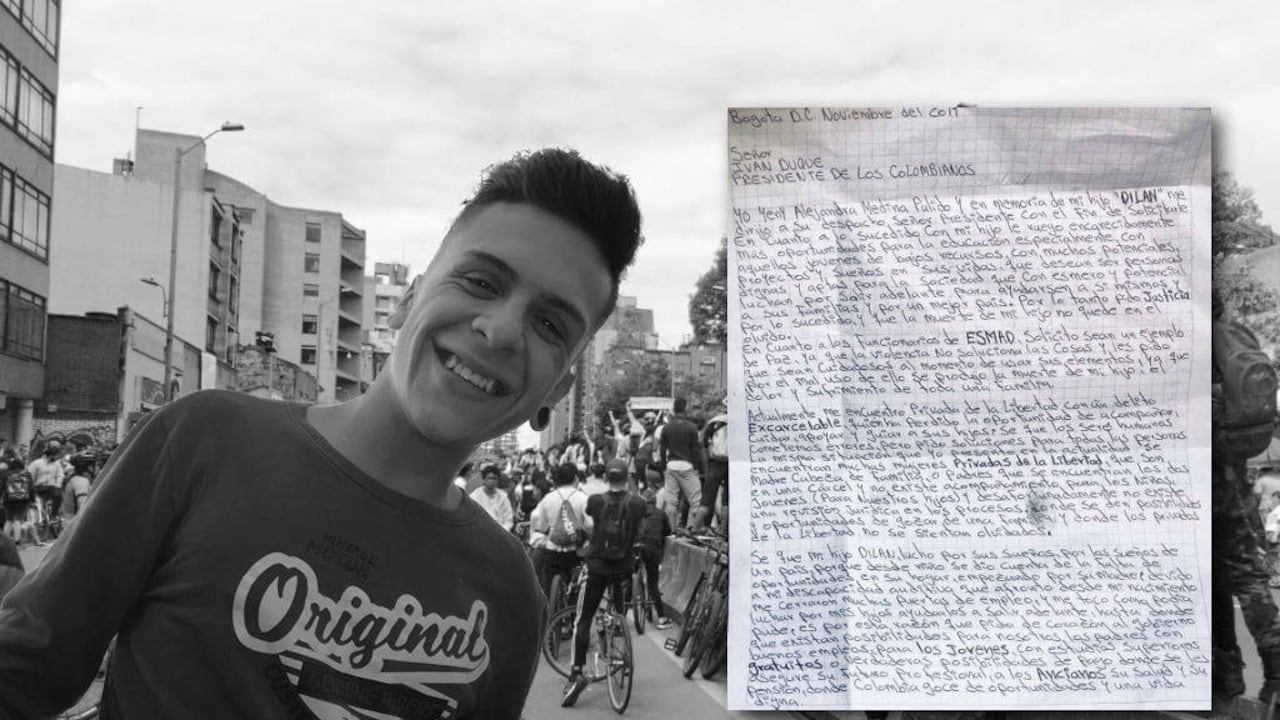 VINTAGE
Original
Bogota D.C. Noviembre del 2019
Señor
IVAN DUQUE
PRESIDENTE DE LOS COLOMBIANOS
Yo Yeny Alejandra Medina Pulido Y en memoria de mi hijo "DILAN" me
dirijo a su despacho Señor Presidente con el Fin de Solicitarle
En Cuanto a lo sucedido con mi hijo le ruego encarecidamente
más oportunidades para la educación especialmente con
aquellos jóvenes de bajos recursos, con muchos potenciales,
proyectos y sueños en sus vidas que desean ser personas
dignas y aptas para la Sociedad que con esmero y potencia
luchan por salir adelante para ayudarsen a si mismos y
a sus familias y por un mejor país. Por lo tanto pido Justicia
por lo sucedido y que la muerte de mi hijo no quede en el
olvido.
En Cuanto a los Funcionarios de ESMAD. Solicito sean un ejemplo
de Paz. Ya que la violencia No soluciona las Cosas, les pido
que sean Cuidadosos al momento de usar sus elementos, Ya que
por el mal uso de ella se produjo la muerte de mi hijo; el
dolor y Sufrimiento de toda una familia.
Actualmente me encuentro Privada de la Libertad con un delito
Excarcelable, quien ha perdido la oportunidad de acompañar,
Cuidar, apoyar y guiar a sus hijos. Se que los seres humanos
Cometemos errores pero pido soluciones para todas las personas
mismas situación que yo presento en esta Carcel se
encuentran muchas mujeres Privadas de la Libertad, que son
Madre Cabeza de familia, o Padres que se encuentran los dos
en una Carcel y no existe acompañamiento para los Niños,
Jovenes (Para Nuestros hijos) y desafortunadamente no existe
una revisión Jurídica en los procesos donde se den posibilidades
y oportunidades de gozar de una familia y donde los privados
de la Libertad no se sientan olvidados.
Se que mi hijo DILAN, lucho por sus sueños, por los sueños de
un país, porque desde niño se dio cuenta de la falta de
oportunidades, en su hogar, empezando por su madre; debido
a mi descapacidad auditiva que afronto desde mi nacimiento
me cerraron muchas puertas de empleo y me toco como madre
luchar por mis hijos y ayudarlos a salir adelante hasta donde
pude; es por esta razón que pido de corazón al gobierno
que existan posibilidades para nosotros los padres con
buenos empleos, para los Jovenes con estudios superiores
gratuitos o verdaderas posibilidades de pago donde se les
asegure su futuro profesional, a los Ancianos su salud y su
pensión, donde Colombia goce de oportunidades y una vida
digna.